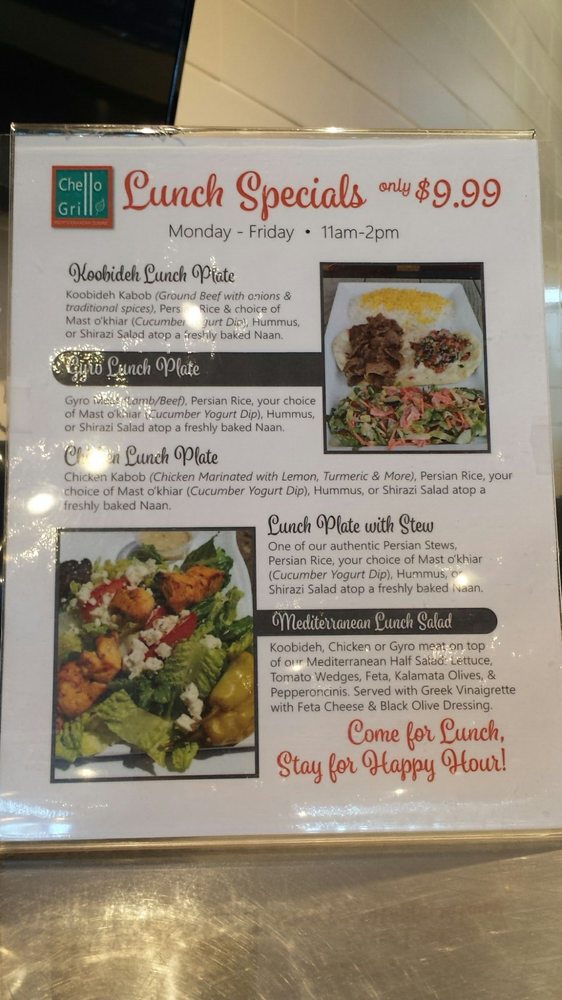 Chello
Grill
Lunch Specials only $9.99
Monday - Friday • 11am-2pm
Koobideh Lunch Plate
Koobideh Kabob (Ground Beef with onions &
traditional spices), Persian Rice & choice of
Mast o'khiar (Cucumber Yogurt Dip), Hummus,
or Shirazi Salad atop a freshly baked Naan.
Gyro Lunch Plate
Gyro Meat (Lamb/Beef), Persian Rice, your choice
of Mast o'khiar (Cucumber Yogurt Dip), Hummus,
or Shirazi Salad atop a freshly baked Naan.
Chicken Lunch Plate
Chicken Kabob (Chicken Marinated with Lemon, Turmeric & More), Persian Rice, your
choice of Mast o'khiar (Cucumber Yogurt Dip), Hummus, or Shirazi Salad atop a
freshly baked Naan.
Lunch Plate with Stew
One of our authentic Persian Stews,
Persian Rice, your choice of Mast o'khiar
(Cucumber Yogurt Dip), Hummus, or
Shirazi Salad atop a freshly baked Naan.
Mediterranean Lunch Salad
Koobideh, Chicken or Gyro meat on top
of our Mediterranean Half Salad: Lettuce,
Tomato Wedges, Feta, Kalamata Olives, &
Pepperoncinis. Served with Greek Vinaigrette
with Feta Cheese & Black Olive Dressing.
Come for Lunch,
Stay for Happy Hour!